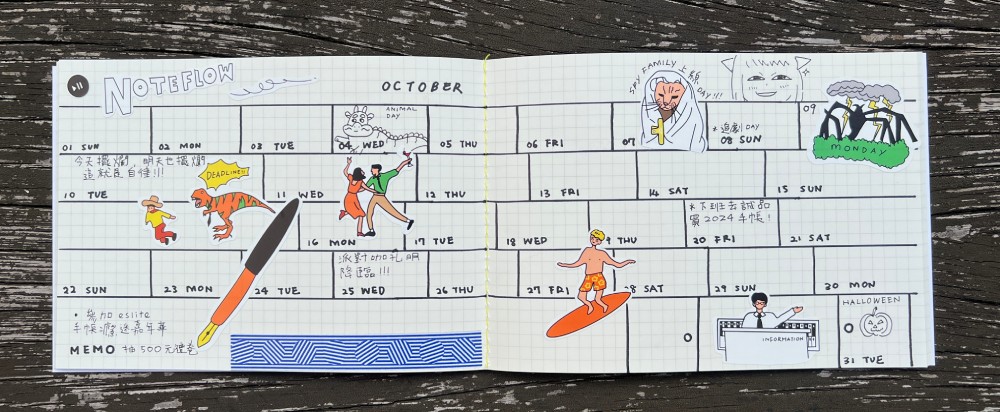 NOTEFLOW
OCTOBER
SPY FAMILY 上線
DAY!!!
ANIMAL
DAY
09
MONDAY
*追劇 DAY
01 SUN
02 MON
03 TUE
04 WED
05 THU
06 FRI
07
08 SUN
今天擺爛,明天也擺爛
這就是自律!!!
DEADLINE!!!
10 TUE
11 WED
12 THU
13 FRI
14 SAT
15 SUN
*下班去誠品
買2024手帳!
16 MON
17 TUE
18 WED
9 THU
20 FRI
21 SAT
派對咖孔明
降臨!!!
22 SUN
23 MON
24 TUE
25 WED
26 THU
27 FRI
8 SAT
29 SUN
30 MON
• 參加 eslite
手帳 送嘉年華
MEMO 抽500元禮卷
INFORMATION
HALLOWEEN
31 TUE